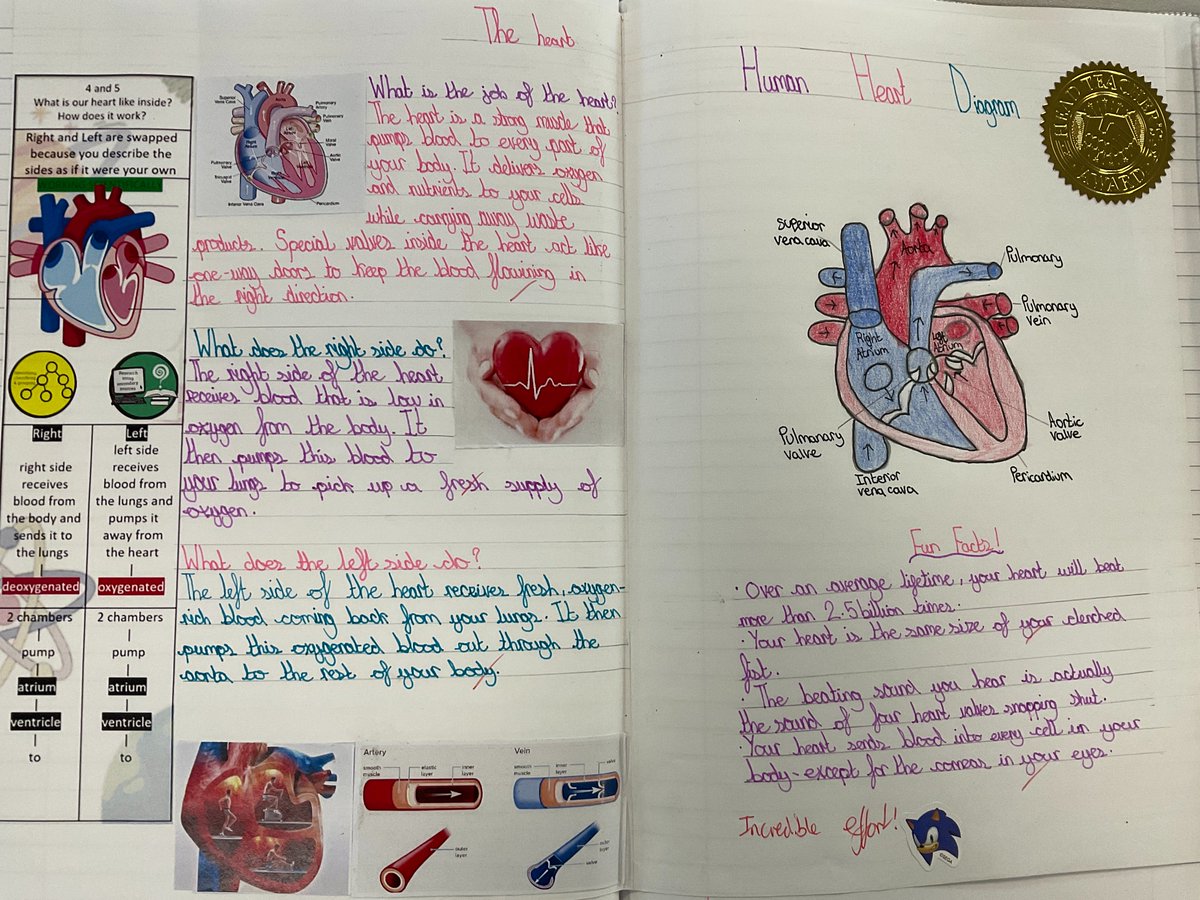 The heart
4 and 5
What is our heart like inside?
How does it work?
Right and Left are swapped
because you describe the
sides as if it were your own
Right
right side
receives
blood from
the body and
sends it to
the lungs
deoxygenated
2 chambers
pump
atrium
ventricle
to
Left
left side
receives
blood from
the lungs and
pumps it
away from
the heart
oxygenated
2 chambers
pump
atrium
ventricle
to
Superior
Vena Cava
Aorta
Pulmonary
Artery
Pulmonary
Vein
Mitral
Valve
Aortic
Valve
Pulmonary
Valve
Tricuspid
Valve
Inferior Vena Cava
Pericardium
What is the job of the heart?
The heart is a strong muscle that
pumps blood to every part of
your body. It delivers oxygen
and nutrients to your cells
while carrying away waste
products. Special valves inside the heart act like
one-way doors to keep the blood flowining in
the right direction.
What does the right side do?
The right side of the heart
receives blood that is low in
oxygen from the body. It
then pumps this blood to
your lungs to pick up a fresh supply of
oxygen.
What does the left side do?
The left side of the heart receives fresh, oxygen-
rich blood coming back from your lungs. It then
pumps this oxygenated blood out through the
aorta to the rest of your body.
Artery
smooth
muscle
elastic
layer
inner
layer
outer
layer
Vein
smooth
muscle
inner
layer
valve
outer
layer
valve
Human Heart Diagram
HEAD TEACHER'S
AWARD
Superior
vena cava
Aorta
Pulmonary
Pulmonary
vein
Right
Atrium
Left
Atrium
Aortic
valve
Pulmonary
valve
Interior
vena cava
Pericardium
Fun Facts!
· Over an average lifetime, your heart will beat
more than 2.5 billion times.
· Your heart is the same size of your clenched
fist.
· The beating sound you hear is actually
the sound of four heart valves snapping shut.
· Your heart sends blood into every cell in your
body - except for the corneas in your eyes.
Incredible effort!